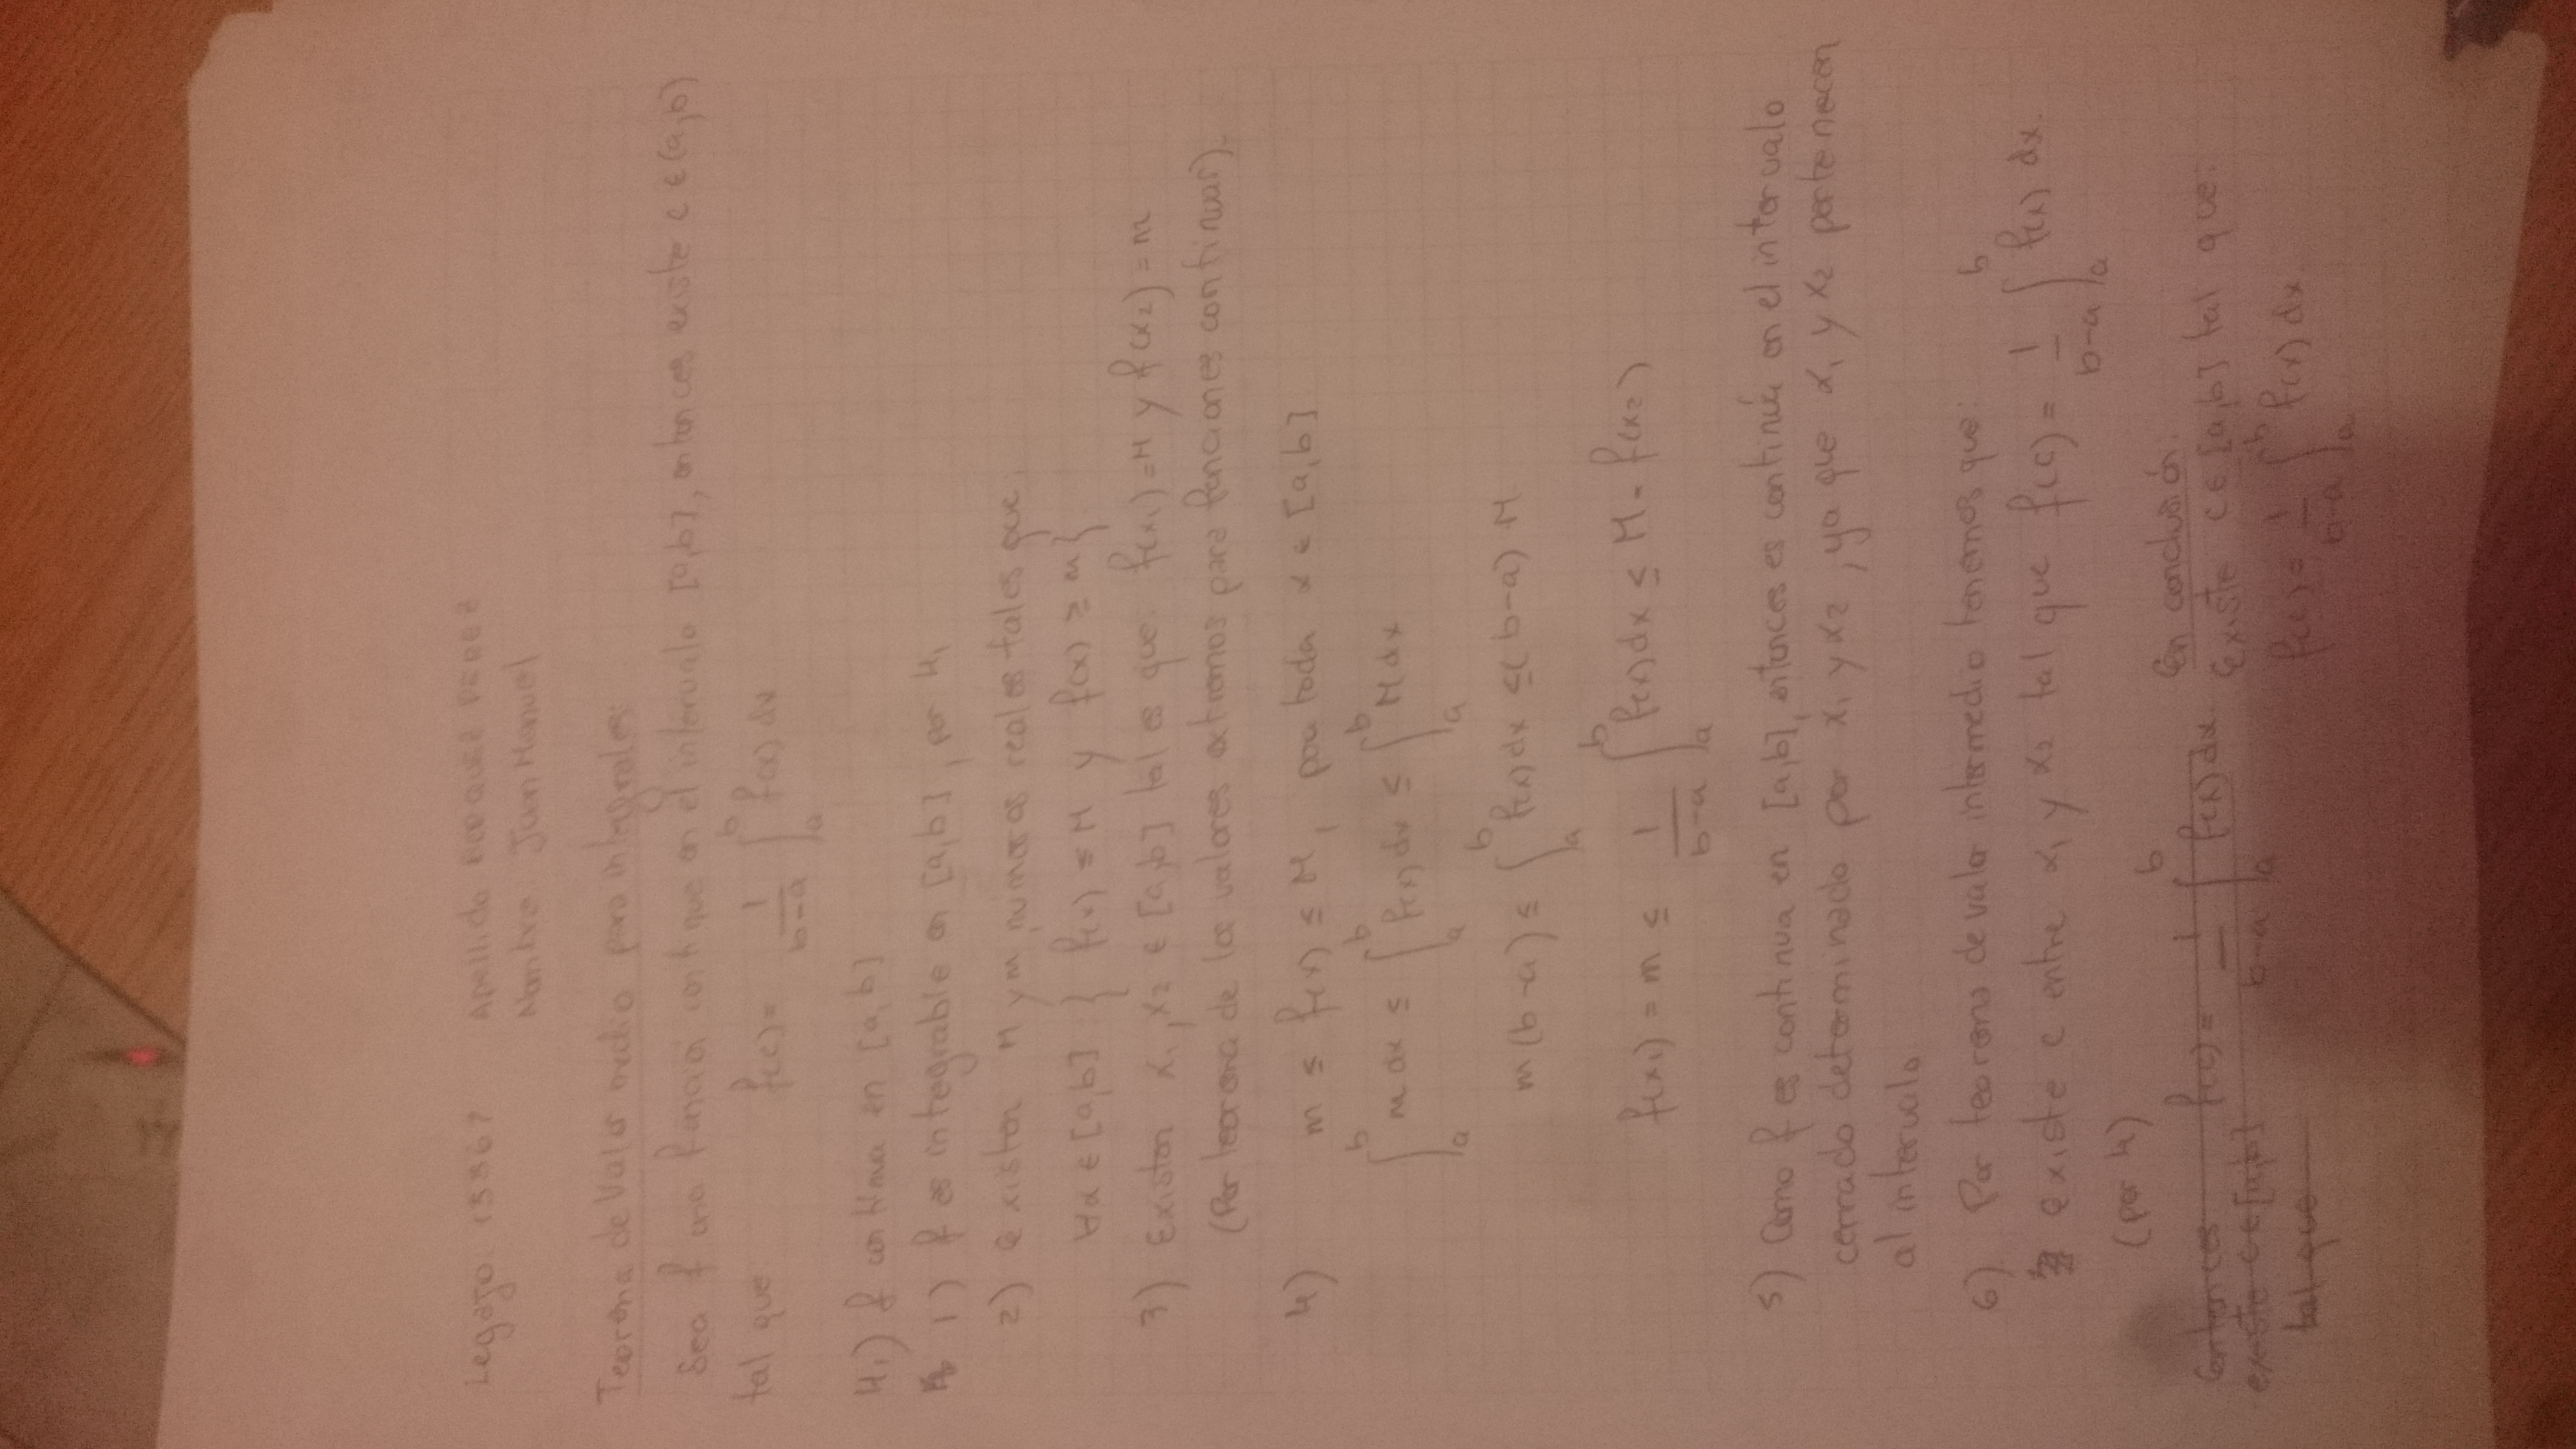 Legajo: 15867 Apellido PEREZ
Nombre Juan Manuel
Teorema de Valor medio para integrales:
Sea f una función continua en el intervalo [a,b], entonces existe c ∈ (a,b)
tal que f(c) = 1/(b-a) ∫_a^b f(x) dx
H₁) f continua en [a,b]
1) f es integrable en [a,b], por H₁
2) existen M y m, números reales tales que
∀x ∈ [a,b] } f(x) ≤ M y f(x) ≥ m }
3) Existen x₁, x₂ ∈ [a,b] tales que: f(x₁) = M y f(x₂) = m
(Por teorema de los valores extremos para funciones continuas).
4) m ≤ f(x) ≤ M, para toda x ∈ [a,b]
∫_a^b m dx ≤ ∫_a^b f(x) dx ≤ ∫_a^b M dx
m(b-a) ≤ ∫_a^b f(x) dx ≤ (b-a) M
f(x₁) = m ≤ 1/(b-a) ∫_a^b f(x) dx ≤ M = f(x₂)
5) Como f es continua en [a,b], entonces es continua en el intervalo
cerrado determinado por x₁ y x₂, ya que x₁ y x₂ pertenecen
al intervalo
6) Por teorema de valor intermedio tenemos que:
existe c entre x₁ y x₂ tal que f(c) = 1/(b-a) ∫_a^b f(x) dx.
(por 4)
Entonces f(c) = 1/(b-a) ∫_a^b f(x) dx.
existe c ∈ [a,b]
tal que
En conclusión:
Existe c ∈ [a,b] tal que:
f(c) = 1/(b-a) ∫_a^b f(x) dx